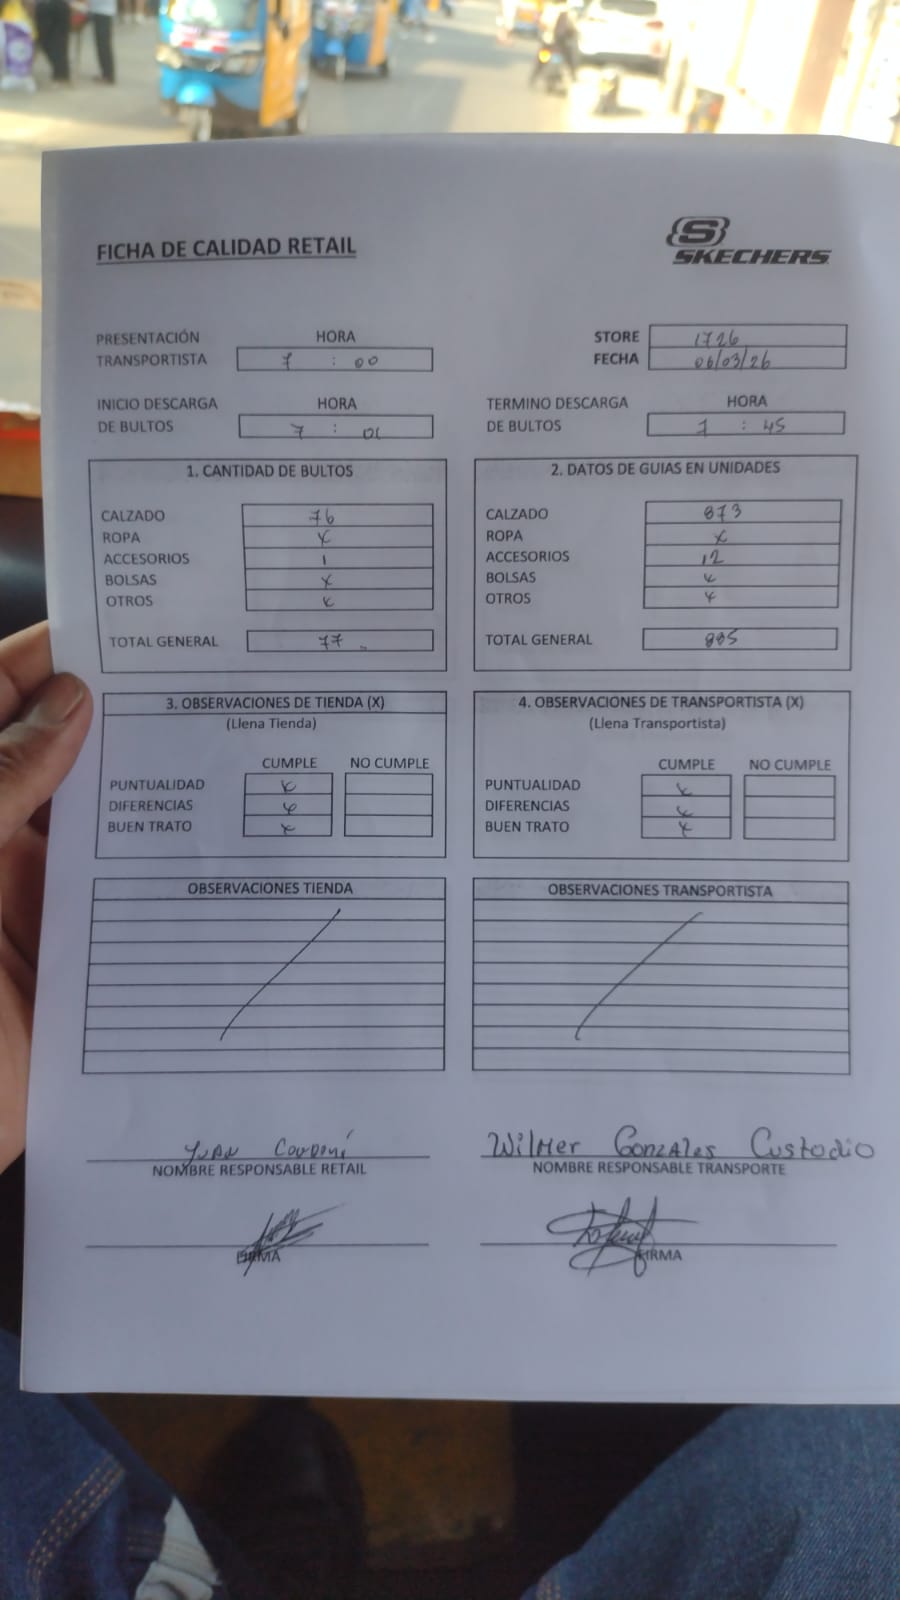 FICHA DE CALIDAD RETAIL
S
SKECHERS
PRESENTACIÓN TRANSPORTISTA HORA 7 : 00
STORE 1726
FECHA 06/03/26
INICIO DESCARGA DE BULTOS HORA 7 : 01
TERMINO DESCARGA DE BULTOS HORA 7 : 45
1. CANTIDAD DE BULTOS
CALZADO 76
ROPA X
ACCESORIOS 1
BOLSAS X
OTROS X
TOTAL GENERAL 77
2. DATOS DE GUIAS EN UNIDADES
CALZADO 873
ROPA X
ACCESORIOS 12
BOLSAS X
OTROS X
TOTAL GENERAL 885
3. OBSERVACIONES DE TIENDA (X)
(Llena Tienda)
CUMPLE NO CUMPLE
PUNTUALIDAD X
DIFERENCIAS X
BUEN TRATO X
4. OBSERVACIONES DE TRANSPORTISTA (X)
(Llena Transportista)
CUMPLE NO CUMPLE
PUNTUALIDAD X
DIFERENCIAS X
BUEN TRATO X
OBSERVACIONES TIENDA
OBSERVACIONES TRANSPORTISTA
JUAN
NOMBRE RESPONSABLE RETAIL
WilMer GonzAles Custodio
NOMBRE RESPONSABLE TRANSPORTE
FIRMA
FIRMA